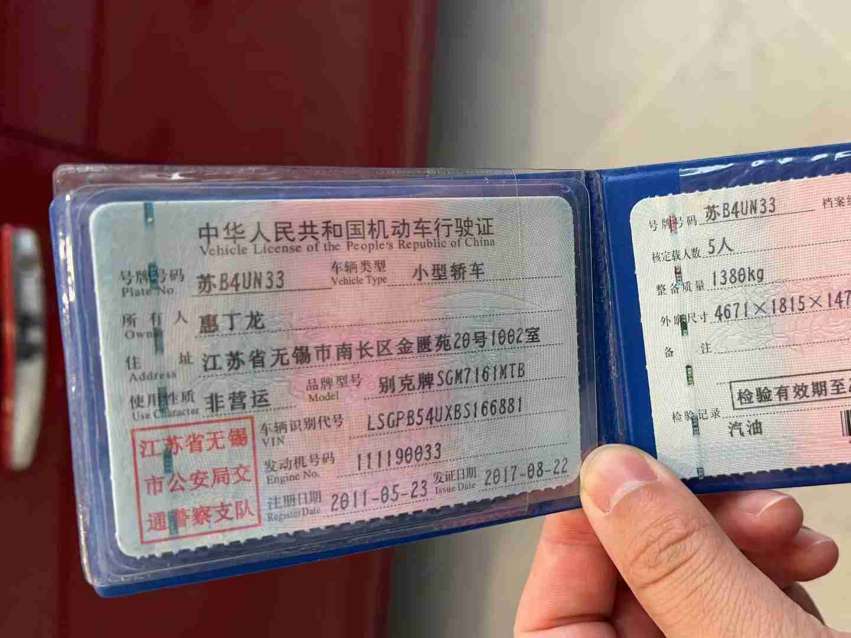 中华人民共和国机动车行驶证
Vehicle License of the People's Republic of China
号牌号码 苏B4UN33 车辆类型 小型轿车
Plate No Vehicle Type
所有人 惠丁龙
Owner
住址 江苏省无锡市南长区金匮苑20号1002室
Address
使用性质 非营运 品牌型号 别克牌SGM7161MTB
Use Character Model
车辆识别代号 LSGPB54UXBS166881
VIN
发动机号码 111190033
Engine No.
注册日期 2011-05-23 发证日期 2017-08-22
Register Date Issue Date
江苏省无锡
市公安局交
通警察支队
号牌号码 苏B4UN33 档案
核定载人数 5人
整备质量 1380kg
外廓尺寸 4671×1815×147
备注
检验有效期至2
检验记录
汽油